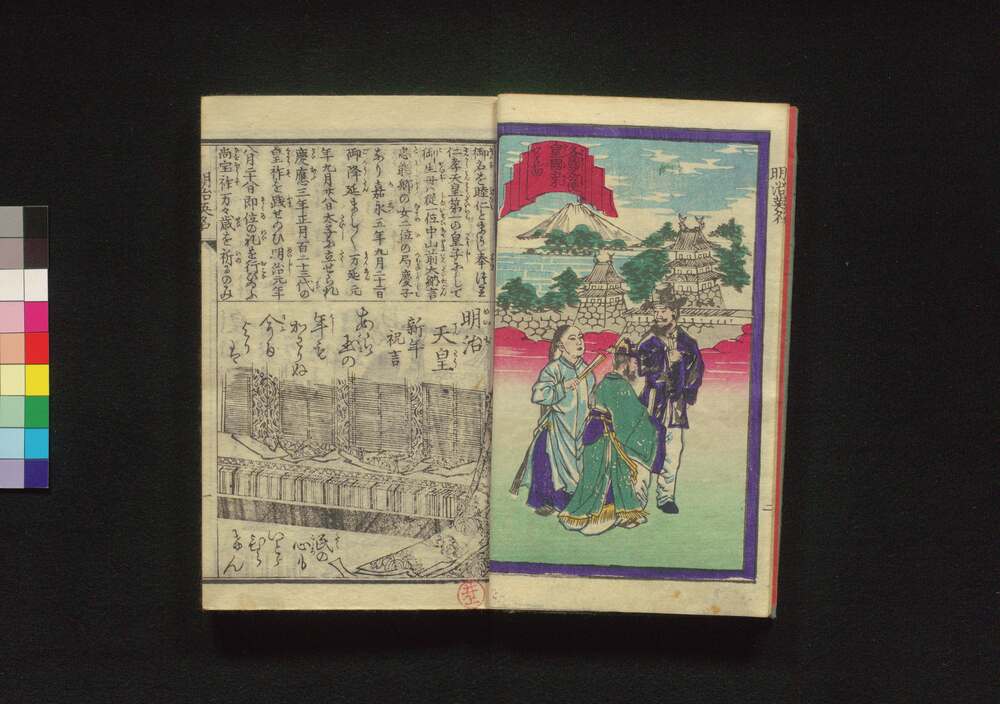 明治英名
皇國
御名を睦仁とまうし奉つる
仁孝天皇第一の皇子にして
御生母ハ從一位中山前大納言
忠能卿の女二位の局慶子
なり嘉永五年九月二十二日
御降延ましまして万延元
年九月廿八日太子に立せられ
慶應三年正月百二十三代の
皇祚を践せ給ひ明治元年
八月二十七日即位の礼を行給ふ
尚宝祚万々歳を祈るのみ
明治
天皇
新年
祝言
あら
玉の
年も
かはらぬ
今日
より
は
民の
心も
いとゞ
ひら
けん
明治英名